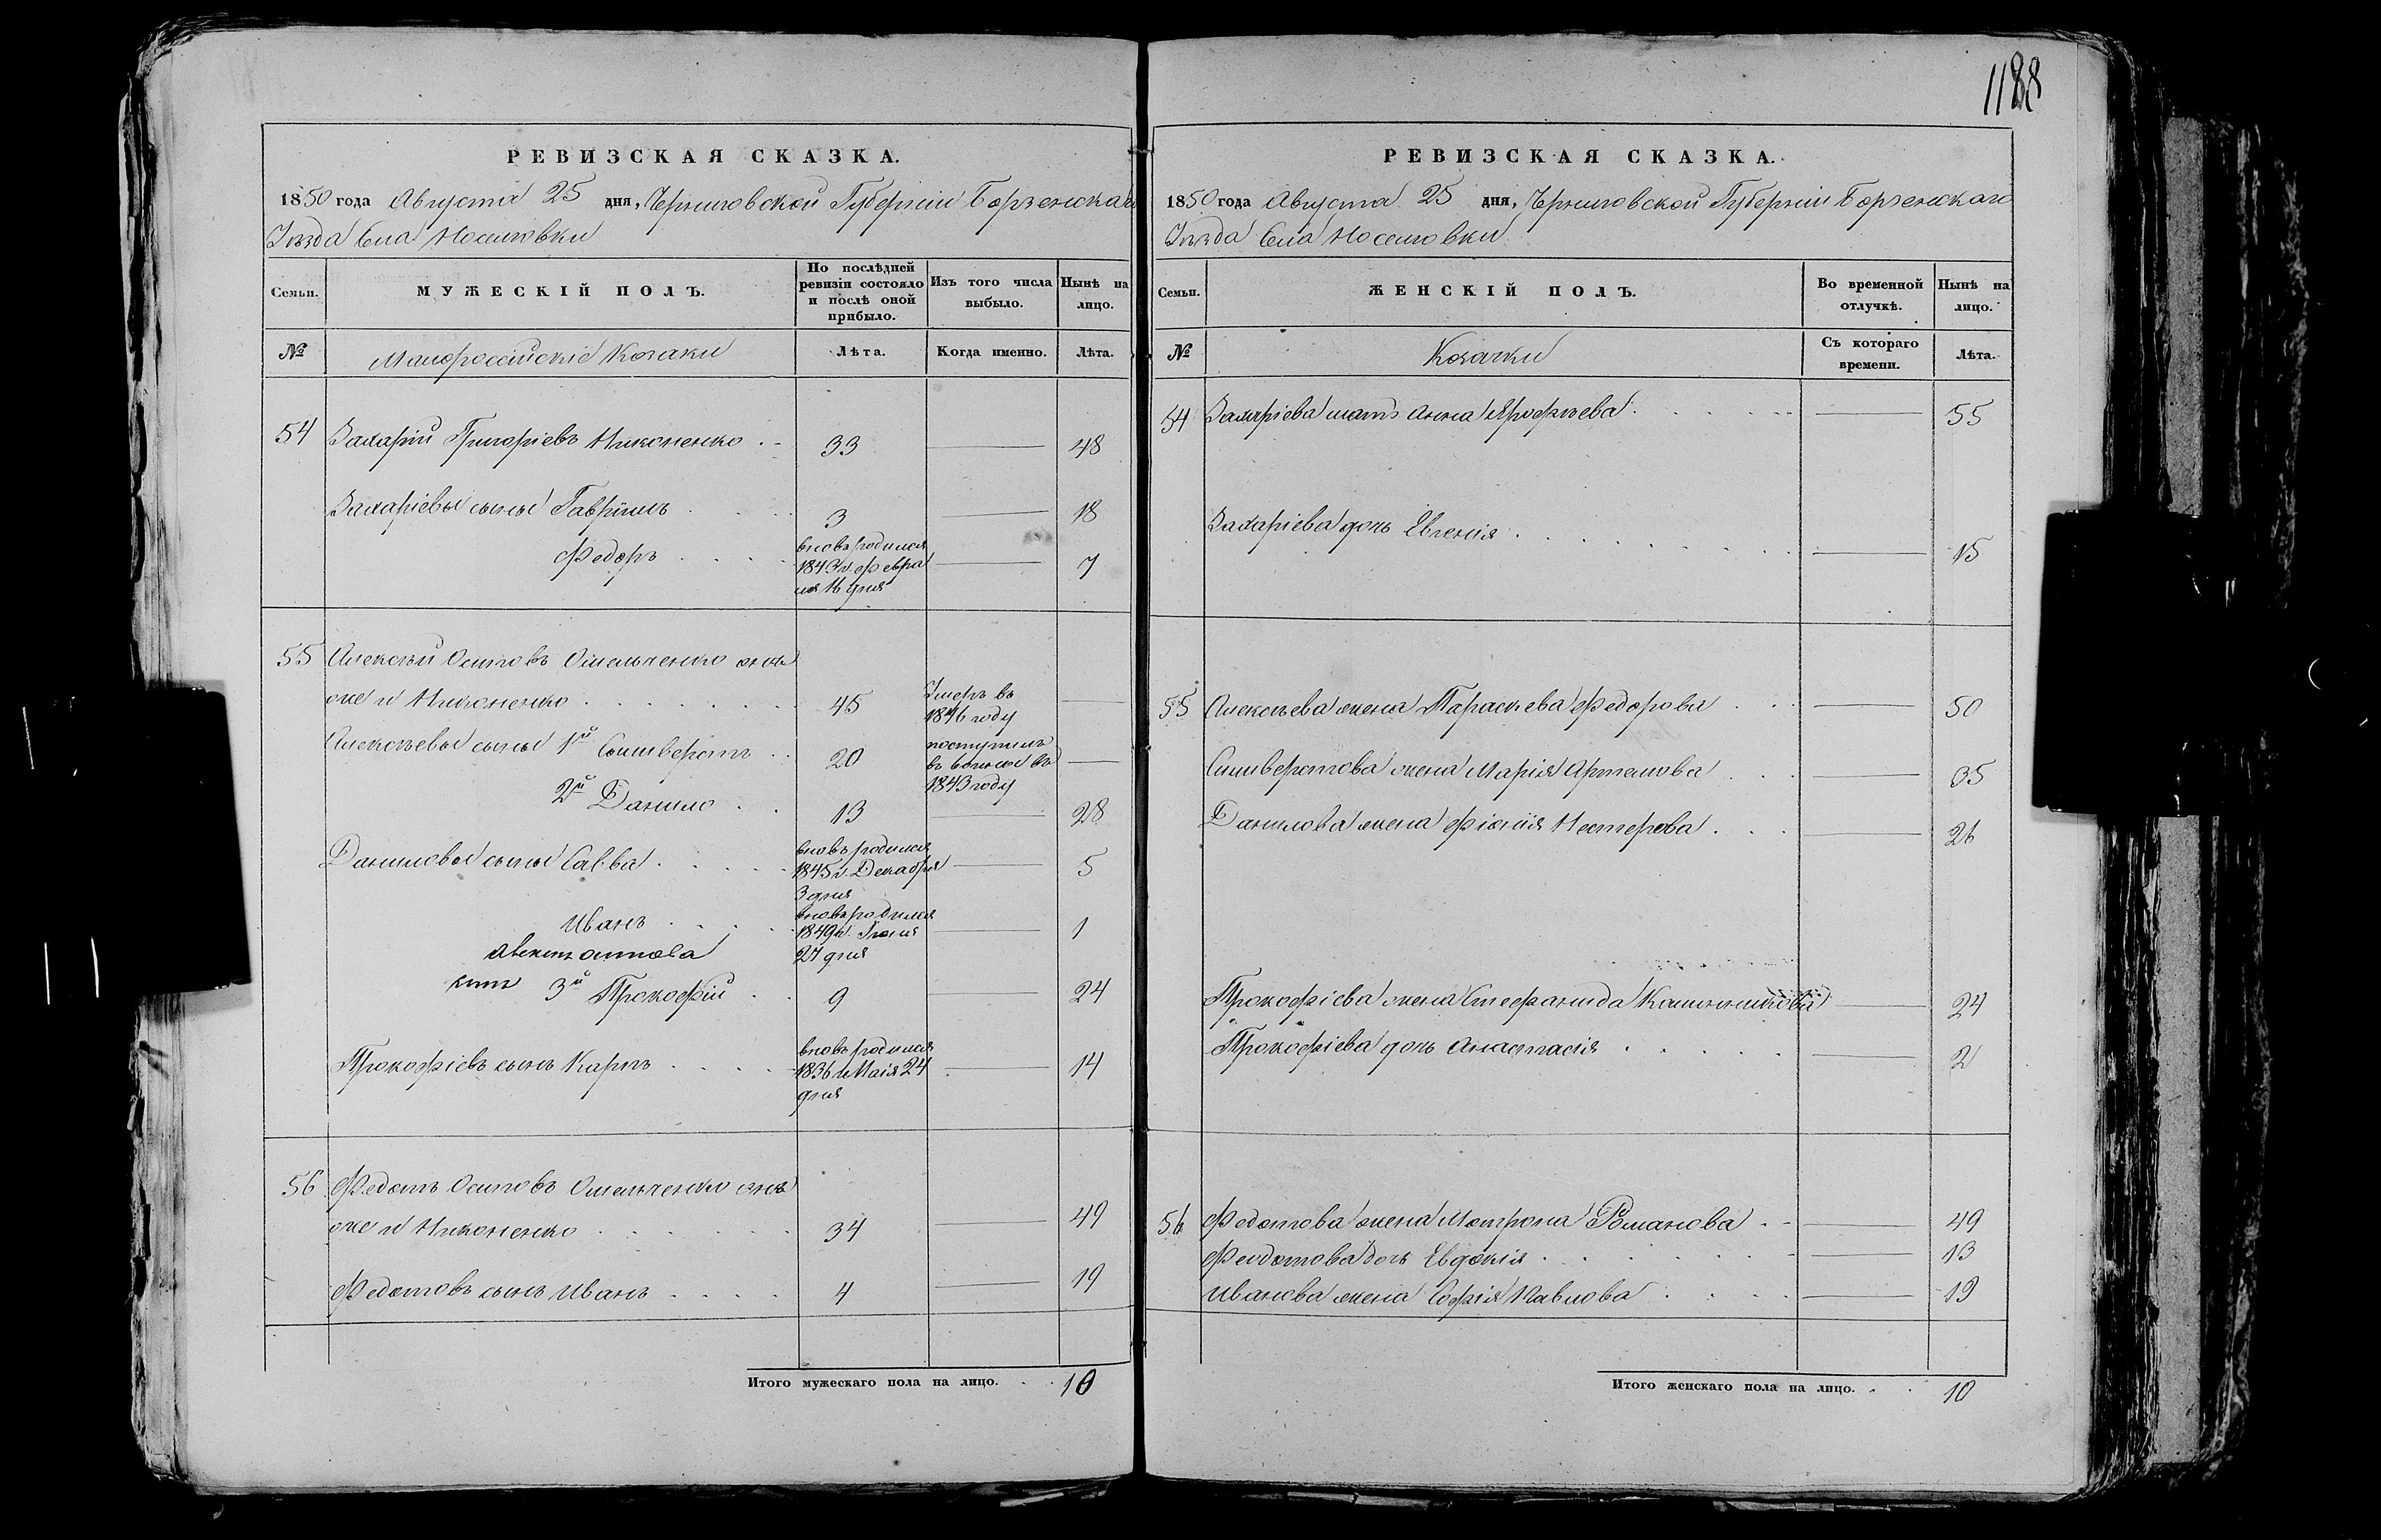 1188
РЕВИЗСКАЯ СКАЗКА.
1850 года Августа 25 дня, Черниговской Губерніи Борзенскаго
Уѣзда Села Носиловки
Семьи.
МУЖЕСКІЙ ПОЛЪ.
По послѣдней ревизіи состояло и послѣ оной прибыло.
Изъ того числа выбыло.
Нынѣ на лицо.
№ Малороссійскіе Козаки Лѣта. Когда именно. Лѣта.
54 Захарій Григоріевъ Никоненко 33 48
Захаріевы сыны Гавріилъ 3 18
Федоръ вновь родился 1843 г. Февраля 16 дня 7
55 Алексѣй Осиповъ Омельченко онъ
же и Никоненко 45 Умеръ въ 1846 году
Алексѣевы сыны 1й Сильверстъ 20 поступилъ въ 1843 году
2й Данило 13 28
Даниловы сыны Савва вновь родился 1845 г. Декабря 3 дня 5
Иванъ вновь родился 1849 г. 27 дня 1
Алексѣя Осипова
сынъ 3й Прокофій 9 24
Прокофіевъ сынъ Карпъ вновь родился 1836 Маія 24 дня 14
56 Федотъ Осиповъ Омельченко онъ
же и Никоненко 34 49
Федотовъ сынъ Иванъ 4 19
Итого мужескаго пола на лицо. 10
РЕВИЗСКАЯ СКАЗКА.
1850 года Августа 25 дня, Черниговской Губерніи Борзенскаго
Уѣзда Села Носиловки
Семьи.
ЖЕНСКІЙ ПОЛЪ.
Во временной отлучкѣ.
Нынѣ на лицо.
№ Козачки Съ котораго времени. Лѣта.
54 Захаріева мать Анна Ярофѣева 55
Захаріева дочь Евгенія 15
55 Алексѣева жена Параскева Федорова 50
Сильверстова жена Марія Артемова 35
Данилова жена Нестерова 26
Прокофіева жена Стефанида 24
Прокофіева дочь Анастасія 2
56 Федотова жена Мотрона Романова 49
Феодотова дочь Евдокія 13
Иванова жена Софія Павлова 19
Итого женскаго пола на лицо. 10